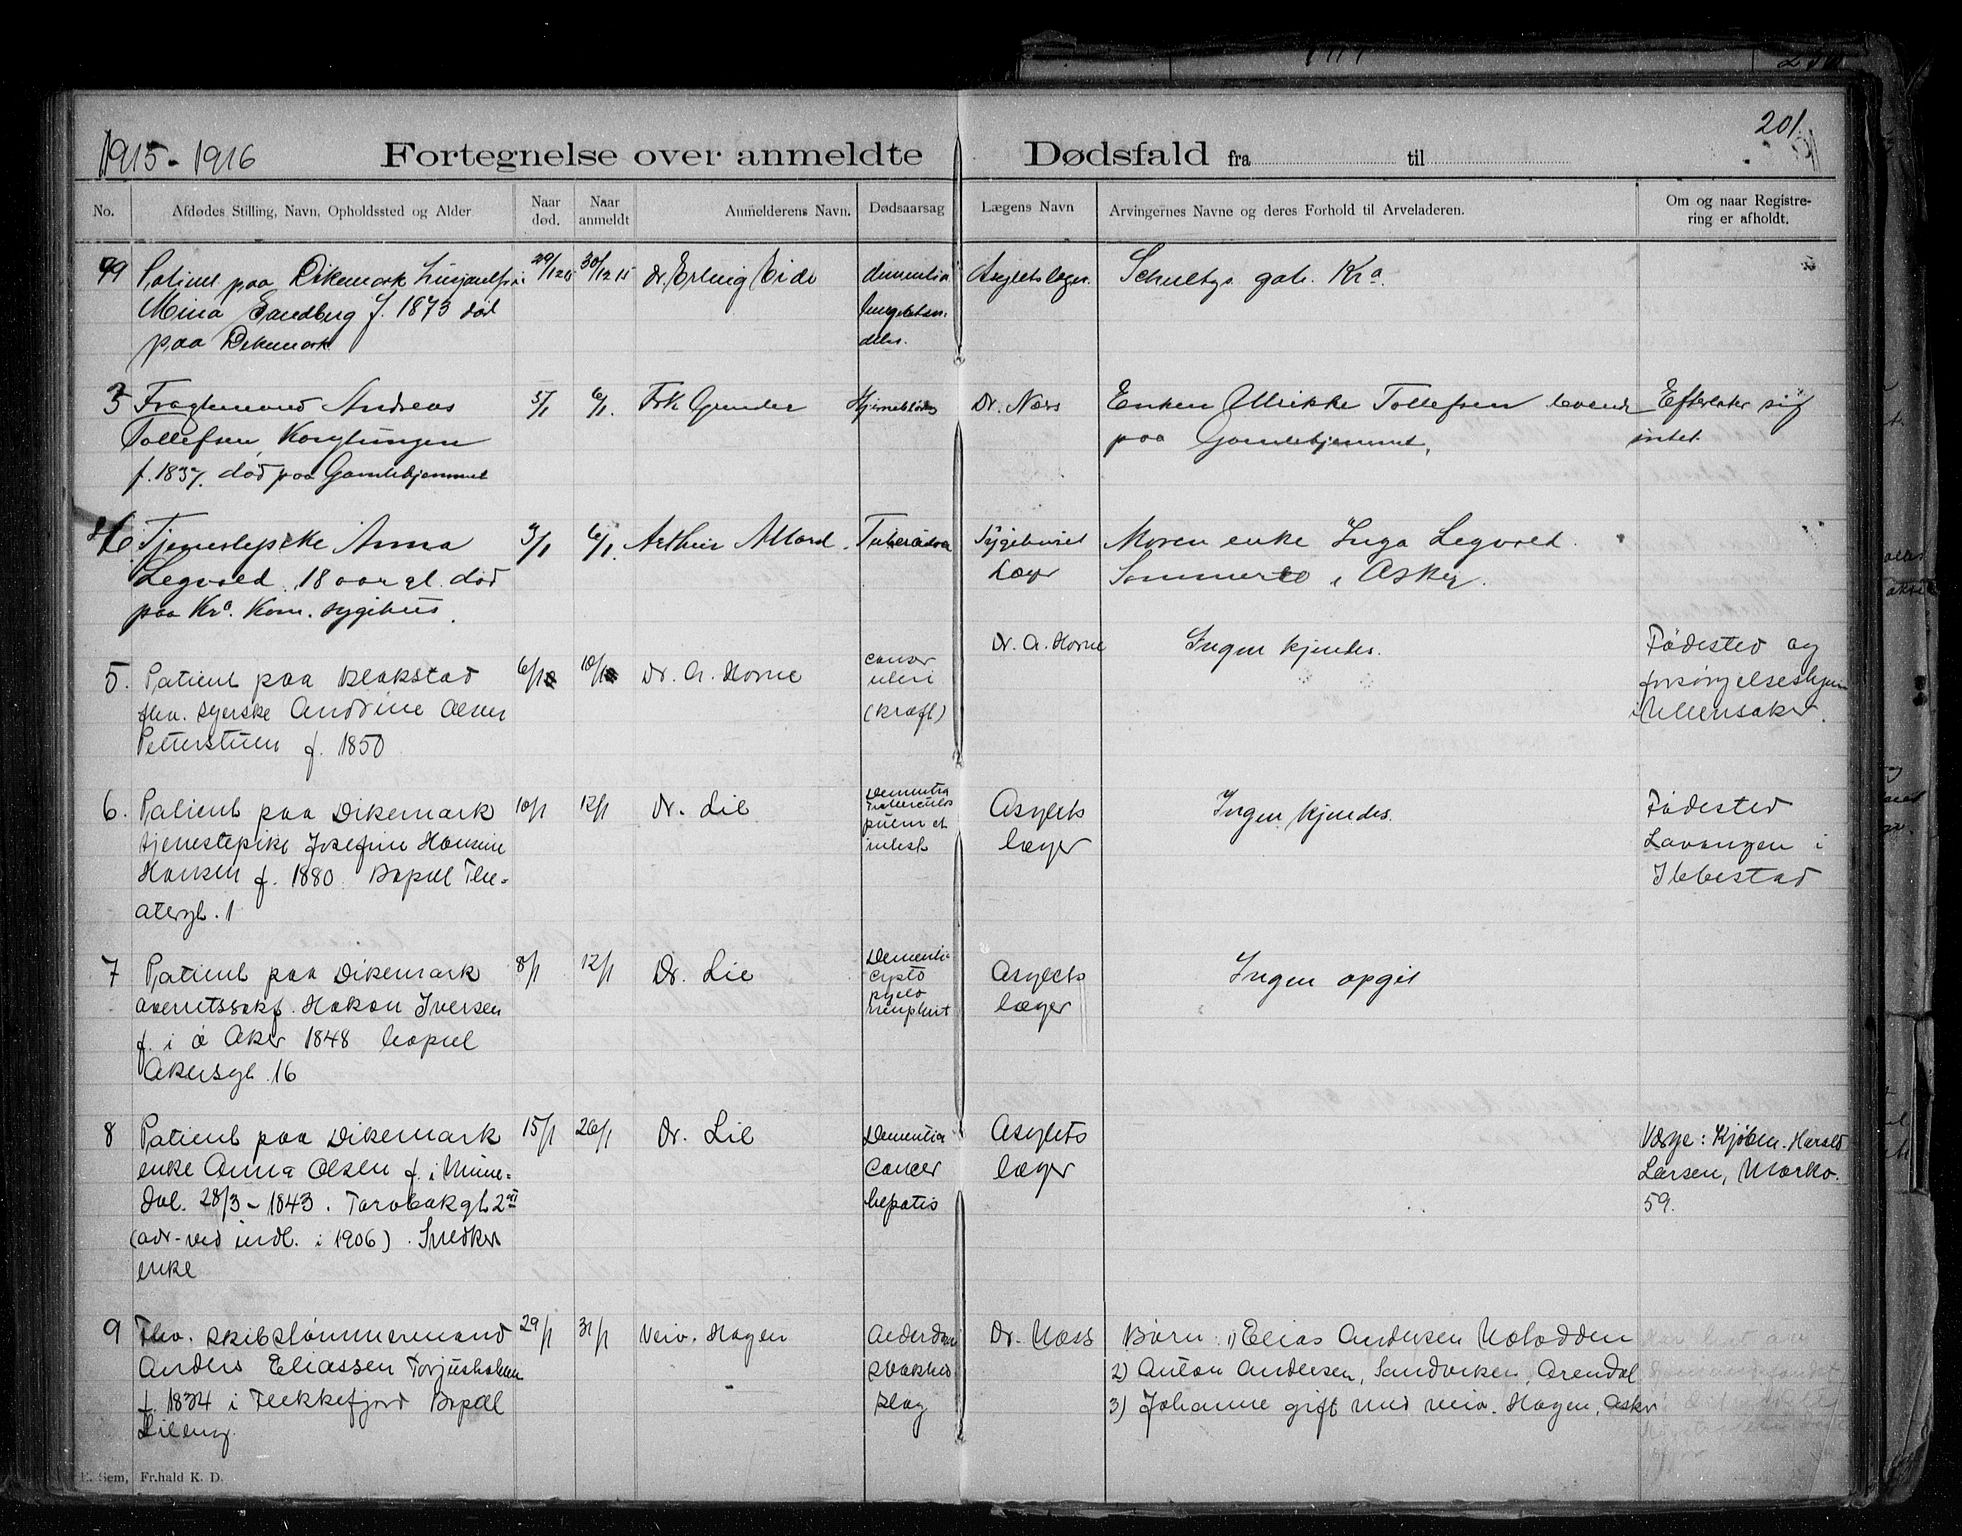 201
1915-1916 Fortegnelse over anmeldte Dødsfald fra til
No.
Afdødes Stilling, Navn, Opholdssted og Alder
Naar død.
Naar anmeldt
Anmelderens Navn.
Dødsaarsag
Lægens Navn
Arvingernes Navne og deres Forhold til Arveladeren.
Om og naar Registre-
ring er afholdt.
Patient paa Dikemark
Mina Sandberg f. 1873 død
paa Dikemark
29/12 15
30/12 15
Dr Erling Eide
dementia
Asylets læger.
Schultzs gate. Kra.
3
Andreas
Tollefsen
f. 1837. død paa Gamlehjemmet
5/1
6/1
Frk Gunder
Dr. Næss
Enken Ulrikke Tollefsen levende
paa Gamlehjemmet.
Efterlater sig
intet.
Tjenestepike Anna
Legvold 18 aar gl. død
paa Kra. Kom. sygehus.
3/1
6/1
Tuberkulose
Sygehuset
Læge
Moren enke Inga Legvold
i Asker.
5.
Patient paa Blakstad
fhv. syerske Andrine Olsen
Petterstuen f. 1850
6/1
10/1
Dr. A. Horne
cancer
uteri
(kræft)
Dr. A. Horne
Ingen kjendes.
Fødested og
forsørgelseshjem
i Ullensaker.
6.
Patient paa Dikemark
tjenestepike Josefine Hansine
Hansen f. 1880. Bopæl The-
atergt. 1
10/1
12/1
Dr. Lie
Dementia
tuberculos
pulm et
intest
Asylets
læger
Ingen kjendes.
Fødested
Lavangen i
Ibbestad
7
Patient paa Dikemark
Hakon Iversen
f. i ø Aker 1848 bopæl
Akersgt. 16
8/1
12/1
Dr. Lie
Dementia
cysto
pyelo
nephrit
Asylets
læger
Ingen opgit
8
Patient paa Dikemark
enke Anna Olsen f. i Numme-
dal. 28/3-1843.
(adr. ved indl. i 1906). Snedker
enke
15/1
26/1
Dr. Lie
Dementia
Cancer
hepatis
Asylets
læger
Værge: Kjøbm. Harald
Larsen, Markv.
59.
9
Fhv. skibstømmermand
Anders Eliassen Torjusholmen
f. 1834 i Flekkefjord Bopæl
29/1
31/1
Veiv. Hagen
Alderdom
svakhed
slag
Dr. Næss
Børn: 1) Elias Andersen Notodden
2) Anton Andersen, Sandviken, Arendal
3) Johanne gift med veiv. Hagen, Asker
E. Sem, Fr.hald K. D.